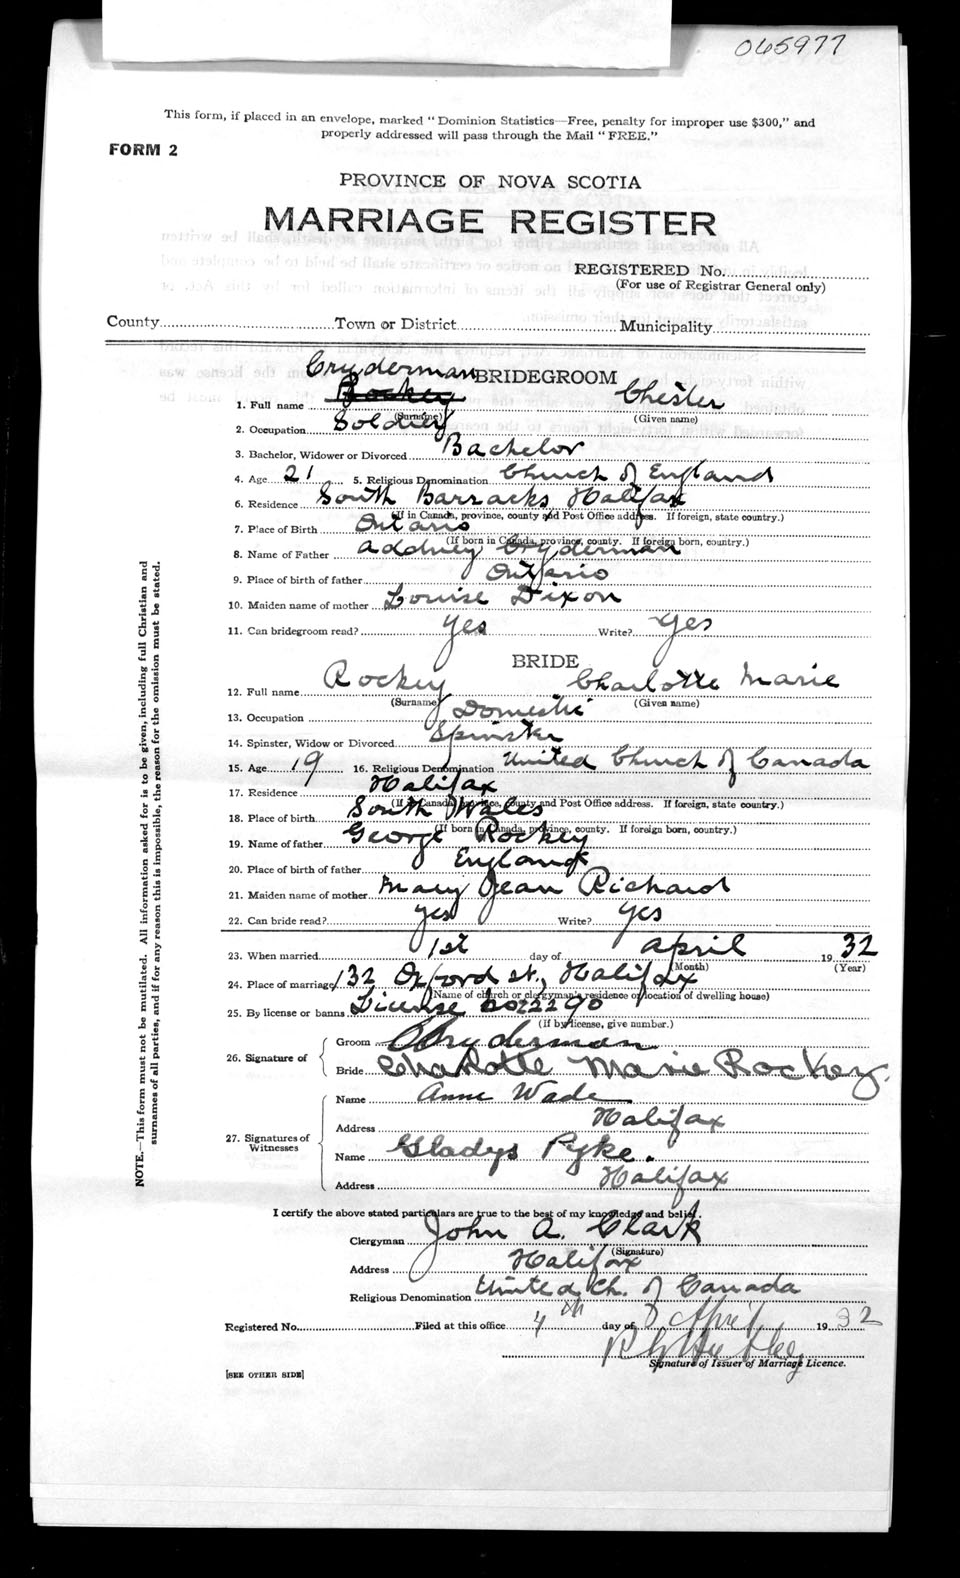 065977
This form, if placed in an envelope, marked "Dominion Statistics—Free, penalty for improper use $300," and
properly addressed will pass through the Mail "FREE."
FORM 2
PROVINCE OF NOVA SCOTIA
MARRIAGE REGISTER
REGISTERED No.
(For use of Registrar General only)
County Town or District Municipality
Cryderman BRIDEGROOM
1. Full name Rockey Chester
(Surname) (Given name)
2. Occupation Soldier
3. Bachelor, Widower or Divorced Bachelor
4. Age 21 5. Religious Denomination Church of England
6. Residence South Barracks Halifax
(If in Canada, province, county and Post Office address. If foreign, state country.)
7. Place of Birth Ontario
(If born in Canada, province, county. If foreign born, country.)
8. Name of Father Addney Cryderman
9. Place of birth of father Ontario
10. Maiden name of mother Louise Dixon
11. Can bridegroom read? Yes Write? Yes
BRIDE
12. Full name Rockey Charlotte Marie
(Surname) (Given name)
13. Occupation Domestic
14. Spinster, Widow or Divorced Spinster
15. Age 19 16. Religious Denomination United Church of Canada
17. Residence Halifax
(If in Canada, province, county and Post Office address. If foreign, state country.)
18. Place of birth South Wales
(If born in Canada, province, county. If foreign born, country.)
19. Name of father George Rockey
20. Place of birth of father England
21. Maiden name of mother Mary Jean Richard
22. Can bride read? yes Write? yes
23. When married 1st day of April 1932
(Month) (Year)
24. Place of marriage 132 Oxford St., Halifax
(Name of church or clergyman's residence or location of dwelling house)
25. By license or banns License no 2290
(If by license, give number.)
26. Signature of
Groom Cryderman
Bride Charlotte Marie Rockey.
27. Signatures of Witnesses
Name Anne Wade
Address Halifax
Name Gladys Pyke.
Address Halifax
I certify the above stated particulars are true to the best of my knowledge and belief.
Clergyman John A. Clark
(Signature)
Address Halifax
Religious Denomination United Ch. of Canada
Registered No. Filed at this office 4th day of April 1932
Signature of Issuer of Marriage Licence.
[SEE OTHER SIDE]
NOTE.—This form must not be mutilated. All information asked for is to be given, including full Christian and
surnames of all parties, and if for any reason this is impossible, the reason for the omission must be stated.